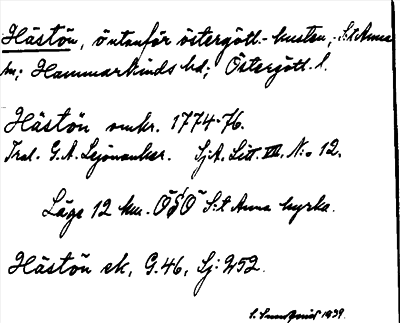 Hästön, öutanför östergötl.-kusten, S:t Anna
sn; Hammarkinds hd; Östergötl. l.
Hästön omkr. 1774-76.
Tral. G. A. Lejonanckar. SjA. Litt. VII. N:o 12.
Läge 12 km. ÖSÖ S:t Anna kyrka.
Hästön ek, G.46, Sj: 252.
1939.